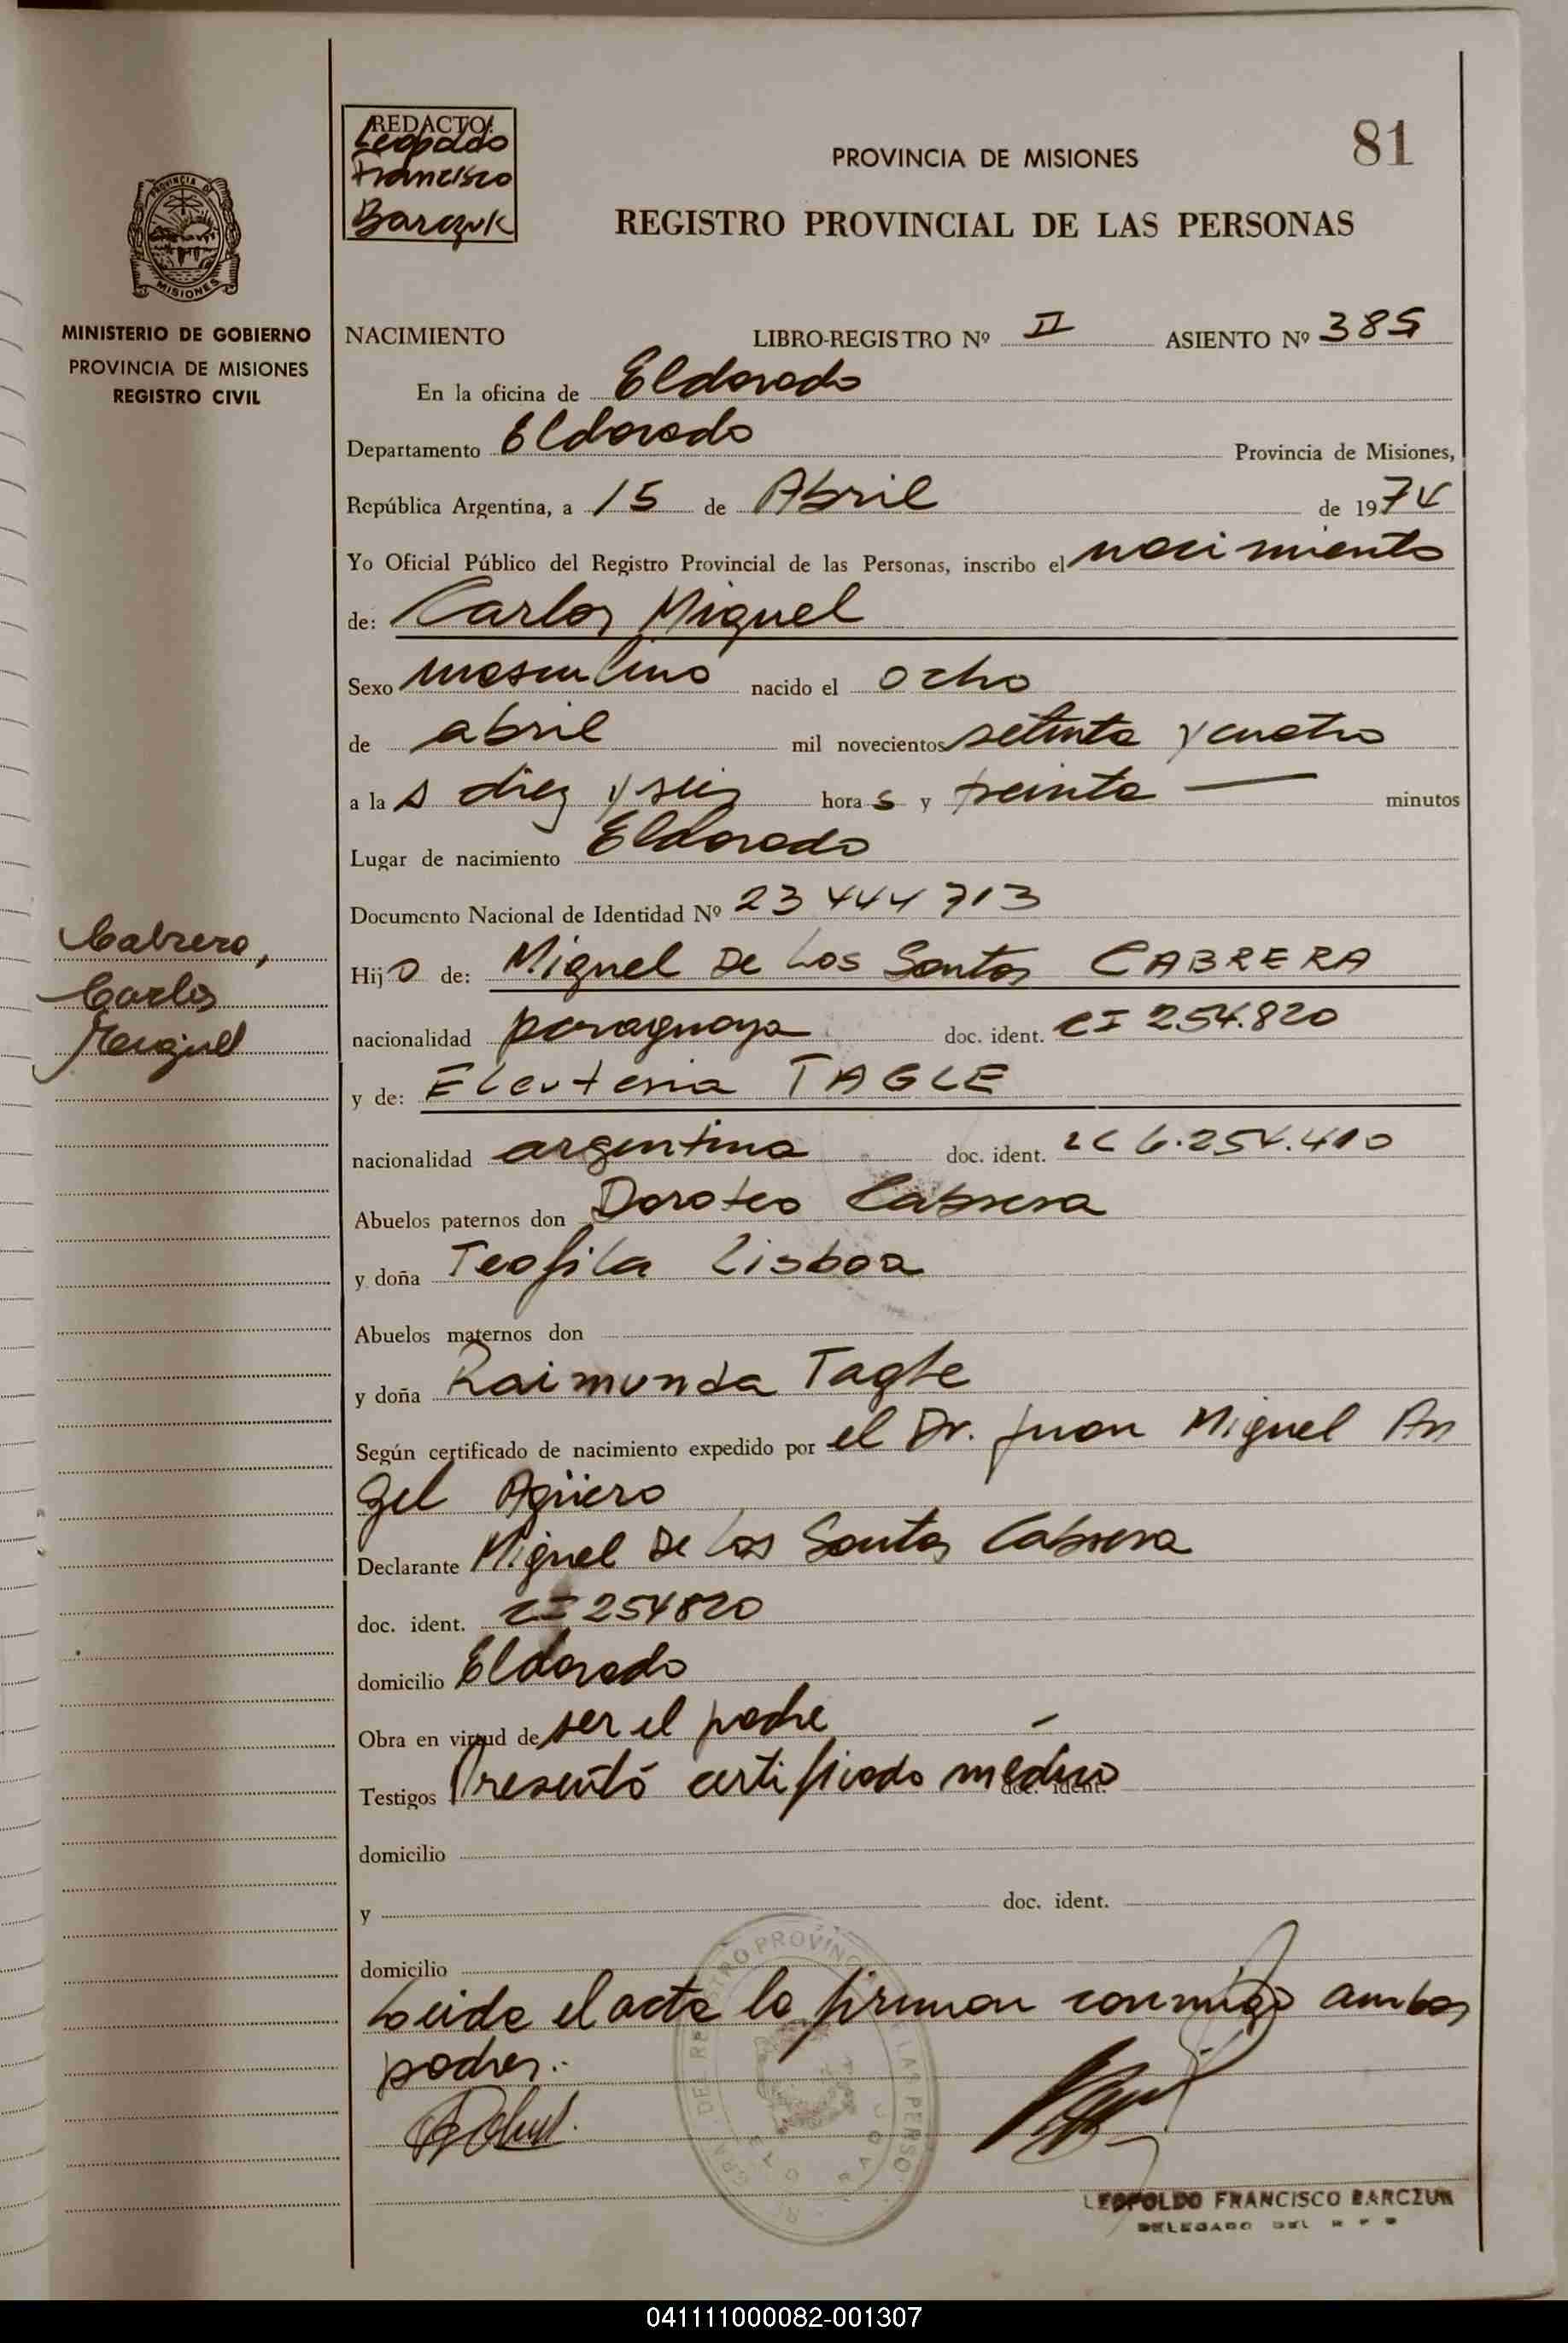 REDACTO:
Leopoldo
Francisco
Barczuk
81
PROVINCIA DE MISIONES
REGISTRO PROVINCIAL DE LAS PERSONAS
PROVINCIA D
MISIONES
MINISTERIO DE GOBIERNO
PROVINCIA DE MISIONES
REGISTRO CIVIL
NACIMIENTO LIBRO-REGISTRO Nº II ASIENTO Nº 385
En la oficina de Eldorado
Departamento Eldorado Provincia de Misiones,
República Argentina, a 15 de Abril de 1974
Yo Oficial Público del Registro Provincial de las Personas, inscribo el nacimiento
de: Carlos Miguel
Sexo masculino nacido el ocho
de abril mil novecientos setenta y cuatro
a las diez y seis horas y treinta — minutos
Lugar de nacimiento Eldorado
Documento Nacional de Identidad Nº 23 444 713
Cabrera,
Carlos
Miguel
Hijo de: Miguel De Los Santos CABRERA
nacionalidad paraguaya doc. ident. CI 254.820
y de: Eleuteria TAGLE
nacionalidad argentina doc. ident. LC 6.254.410
Abuelos paternos don Doroteo Cabrera
y doña Teofila Lisboa
Abuelos maternos don
y doña Raimunda Tagle
Según certificado de nacimiento expedido por el Dr. Juan Miguel An
gel Agüero
Declarante Miguel De Los Santos Cabrera
doc. ident. CI 254820
domicilio Eldorado
Obra en virtud de ser el padre –
Testigos Presentó certificado médico doc. ident.
domicilio
y doc. ident.
domicilio
Leida el acta la firman conmigo ambos
padres.-
LEOPOLDO FRANCISCO BARCZUK
DELEGADO DEL R P P
041111000082-001307